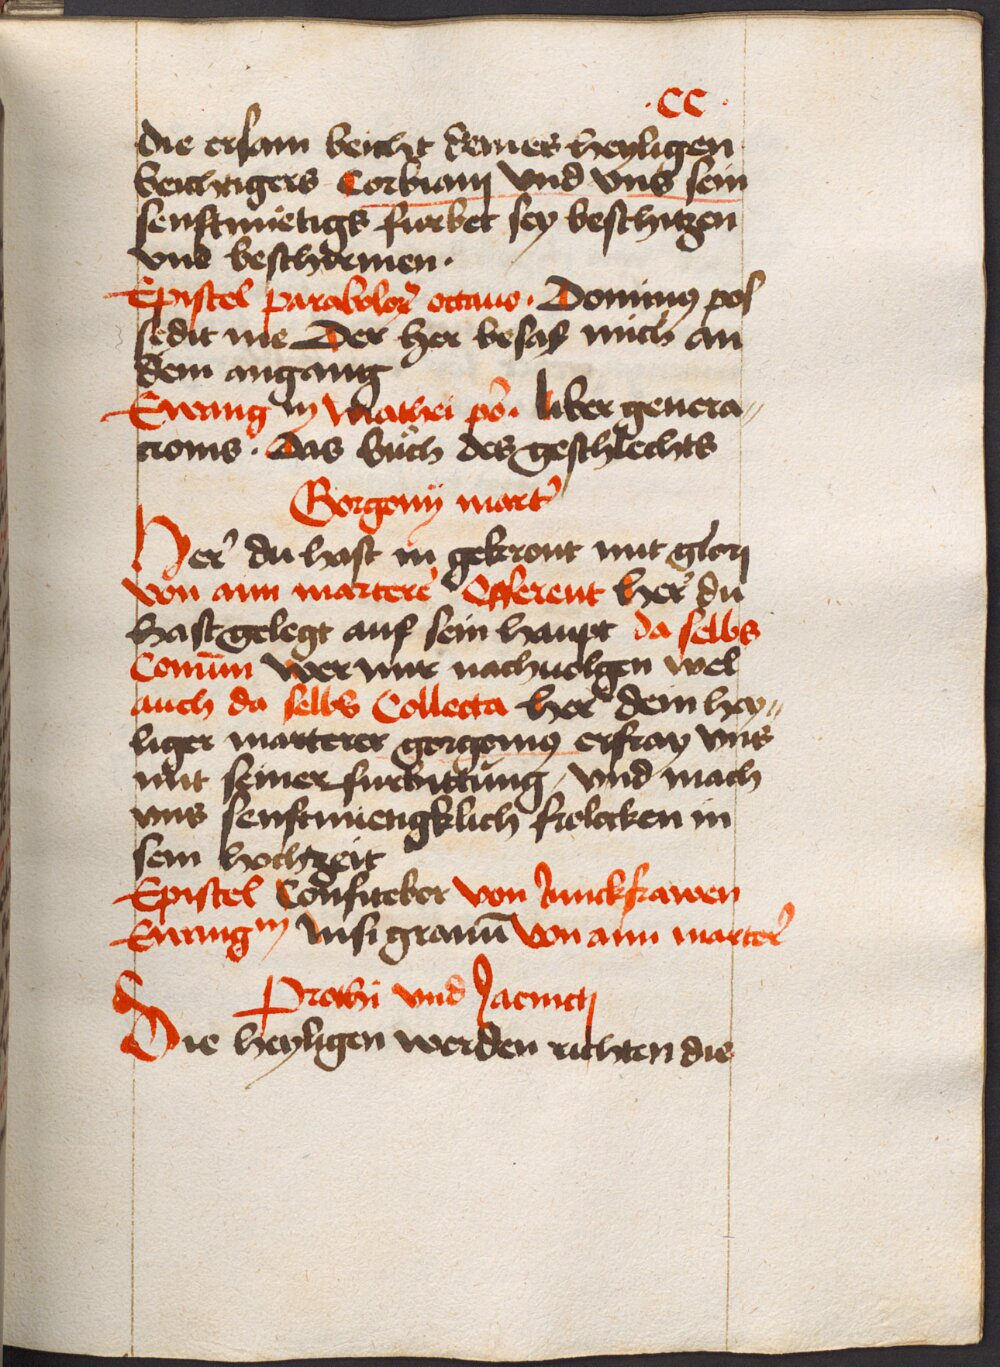 ·CC·
die ersam beicht deines heyligen
beichtigers Corbiani vnd vns sein
senftmüetigs furbet sey beschitzen
vnd beschirmen·
Epistel parabolor̄ octauo· Dominus pos
sedit me Der her besas mich an
dem angang
Ewang m Mathei po· liber genera„
cionis· Das büch des geschlechts
Gorgonij mart̓
Her̓ du hast in gekront mit glori
von aim martere̓ Offerent her̓ du
hast gelegt auf sein haupt da selbs
Comūm wer mir nachuolgen wel
auch da selbs Collecta her̓ dem hey„
liger marterer gorgonius erfray vns
mit seiner furbittung / vnd mach
vns senftmuetigklich frolocken in
sein hochzeit
Epistel Confitebor von Junckfrawen
Ewangm Nisi granū von aim marter̓
Prothi vnd Jacincti
Die heyligen werden richten die